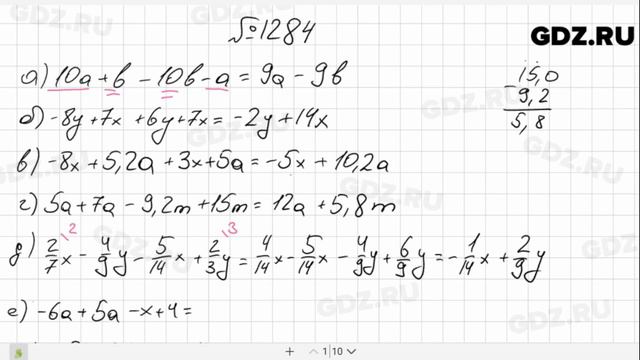 №1284
GDZ.RU
а) 10a + b - 10b - a = 9a - 9b
15,0
- 9,2
5,8
б) -8y + 7x + 6y + 7x = -2y + 14x
в) -8x + 5,2a + 3x + 5a = -5x + 10,2a
г) 5a + 7a - 9,2m + 15m = 12a + 5,8m
д) 2/7 x - 4/9 y - 5/14 x + 2/3 y = 4/14 x - 5/14 x - 4/9 y + 6/9 y = - 1/14 x + 2/9 y
2 3
е) -6a + 5a - x + 4 =
1 | 10